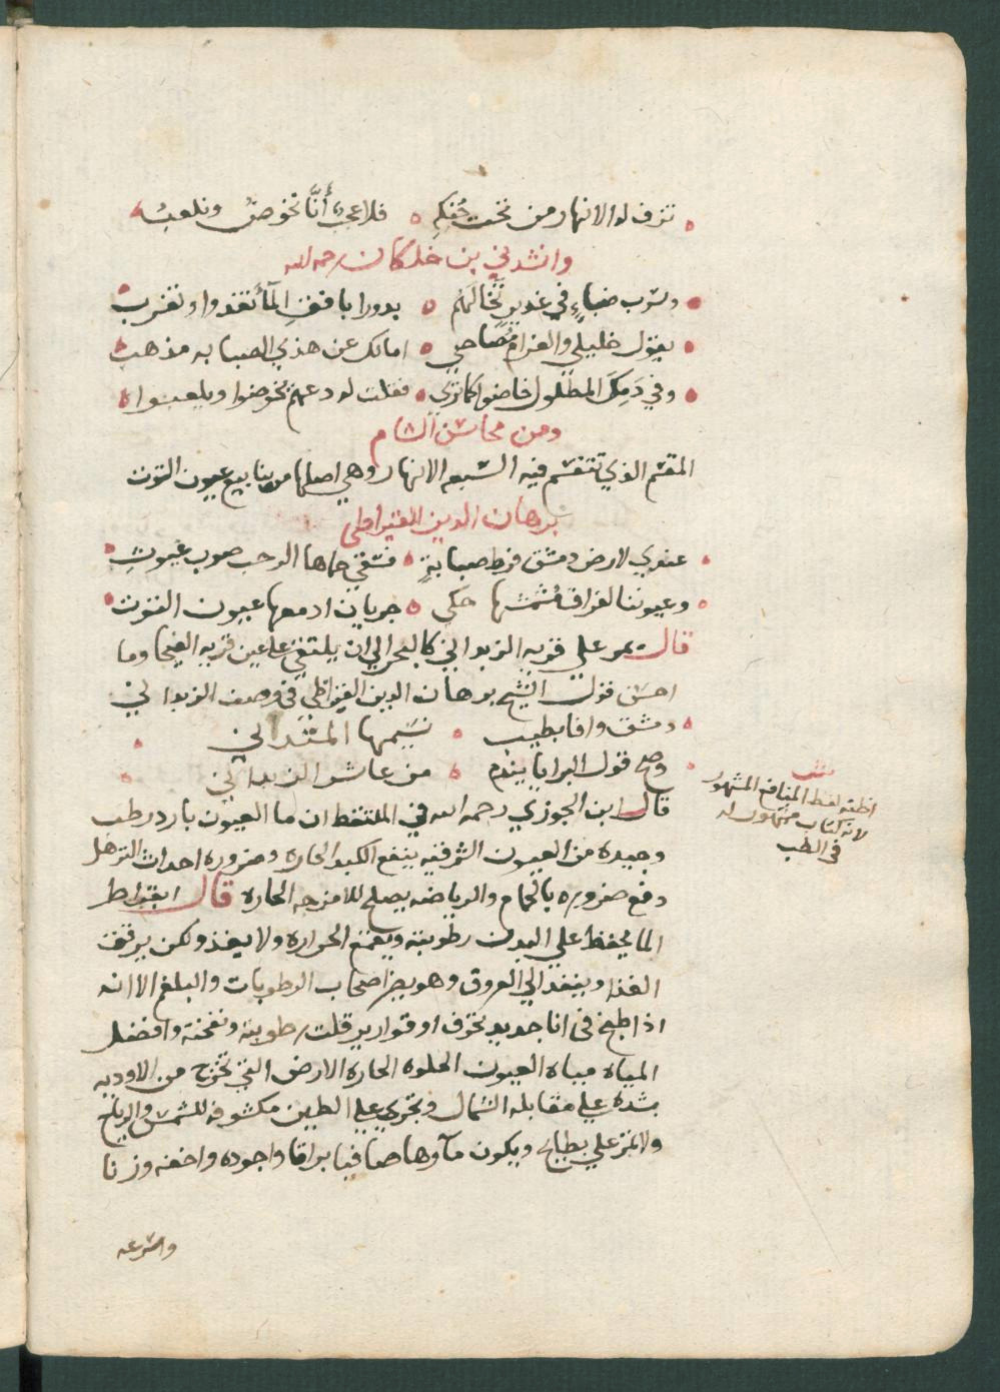 تزف له الانهار من تحت حنكه فلا عجب أنَّا نخوض ونلعب
وانشدني بن خلكان رحمه الله
وسرب ضباءٍ في غدير تخالهم بدورا بافق المآ تغدوا وتغرب
يقول خليلي والغرام مصاحبي امالك عن هذي الصبابه مذهب
وفي دمك المطلول خاضوا كما ترى فقلت له دعهم يخوضوا ويلعبوا
ومن محاسن الشام
المقسم الذي تنقسم فيه السبعه الانهار وهي اصلها من ينابيع عيون التوت
برهان الدين القيراطي
عندي لارض دمشق فرط صبابةٍ فسقي حماها الرحب صوب غيوثِ
وعيوننا لفراق حكي جريان ادمعها عيون التوث
قال يمر علي قريه الزبداني كالبحر الي ان يلتقي علي عين قريه الفيجا وما
احسن قول الشيخ برهان الدين القيراطي في وصف الزبداني
دمشق وافا بطيب نسيمها المتداني
وصح قول البرايا من عاشر الزبداني
قال ابن الجوزي رحمه الله في الملتقط ان ما العيون بارد رطب
وجيده من العيون الشرقيه ينفع الكبد الحاره وضروره احداث الترهل
دفع ضروره بالحمام والرياضه يصلح للامزجه الحاره قال ابقراط
الما يحفظ علي البدن رطوبته ويقمع الحراره ولا يغذو لكن يرقق
الغذا وينفذ الي العروق وهو يضر اصحاب الرطوبات والبلغم الا انه
اذا طبخ في انا جديد خزف او قوارير قلت رطوبته ونفخته وافضل
المياه مياه العيون الحلوه الحاره الارض التي تخرج من الاوديه
بشده علي مقابله الشمال وتجري علي الطين مكشوفه للشمس والرياح
ولا تمر علي بطايح ويكون مآوها صافيا براقا واجوده واخفه وزنا
واسرعه
اظنه لقط المنافع المشهور
لانه كتاب له
في الطب